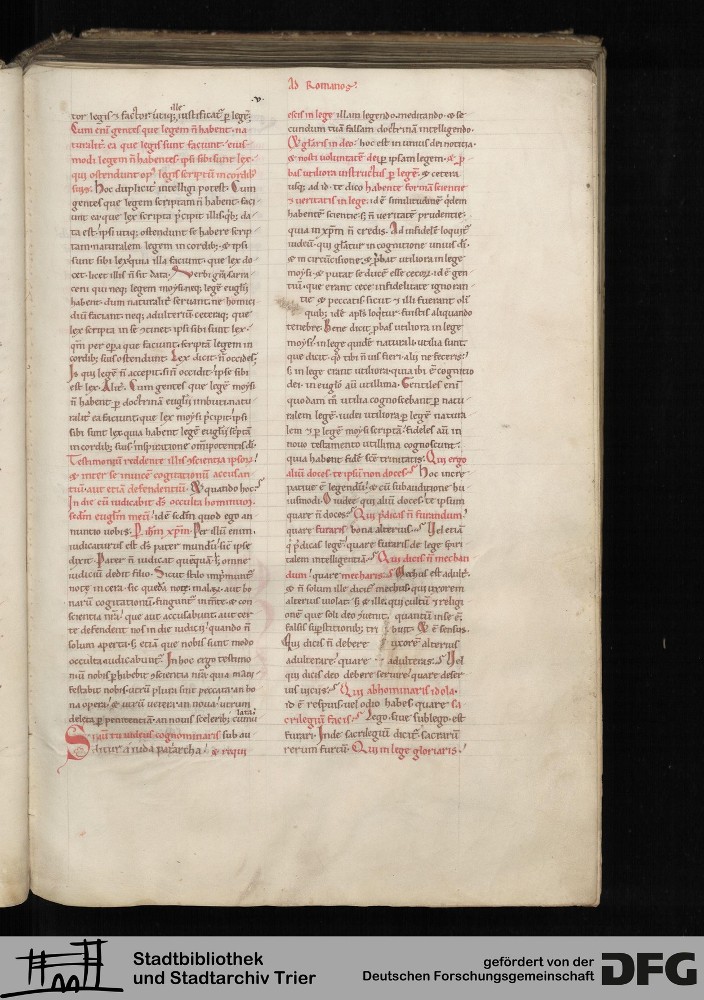 Ad Romanos
.v.
ille
tor legis ⁊ factor utiq; iustificat᷑ p̱ legē.
Cum eni᷑ gentes que legem n̄ habent na-
turalit᷑ ea que legis sunt faciunt. eius-
modi legem n̄ habentes ipsi sibi sunt lex.
qui ostendunt op᷒ legis scriptū in cordib᷒
suis. Hoc dupliciť intelligi potest. Cum
gentes que legem scriptam n̄ habent faci-
unt ea que lex scripta p̄cipit illis quib; da-
ta est. ipsi utiq; ostendunt se habere scrip-
tam naturalem legem in cordib; ⁊ ipsi
sunt sibi lex. quia illa faciunt que lex do-
cet. licet illis n̄ sit data. Verbi grā. sarra-
ceni qui neq; legem moysi neq; legē euglii
habent. dum naturalit᷑ seruant. ne homici-
diū faciant. neq; adulteriū. ceteraq; que
lex scripta in se ɔtinet. ipsi sibi sunt lex.
qm̄ per opera que faciunt. scriptā legem in
cordib; suis ostendunt. Lex dicit. n̄ occides.
Is qui legē n̄ accepit. si n̄ occidit. ipse sibi
est lex. Aliť. Cum gentes que legē moysi
n̄ habent p̱ doctrinā euglii imbuti. natu-
ralit᷑ ea faciunt. que lex moysi p̄cipit. ipsi
sibi sunt lex. quia habent legē euglii sc̄ptā
in cordib; suis inspiratione om̄ipotentis di᷑.
Testimoniū reddente illis ɔscientia ipsor᷑.
⁊ inter se inuicē cogitationū accusan-
tiū aut etiā defendentiū. quando hoc.
In die cū iudicabit ds᷑ occulta hominum.
scd̄m euglm᷑ meū. idē scd̄m quod ego an-
nuntio uobis. P̱ ihm᷑ xpm᷑. Per illū enim
iudicaturus est ds᷑ pater mundū. sic̄ ipse
dixit. Pater n̄ iudicat quēquā. s; omne
iudiciū dedit filio. Sicut stilo imp̄munt᷑
note in cera. sic quedā note malar᷑ aut bo-
narū cogitationū finguntur in m̄te ⁊ con-
scientia nr̄a. que aut accusabunt. aut cer-
te defendent nos in die iudicii. quando n̄
solum aperta. s; etiā que nobis sunt modo
occulta iudicabunt᷑. In hoc ergo testimo-
niū nobis p̱hibebit ɔscientia nr̄a. quia mani-
festabit nobis. utrū plura sint peccata. an bo-
na opera. ⁊ utrū uetera. an noua. utrum
lata᷑
deleta p̱ penitentiā. an nouis scelerib; cumu
Si aut tu iudeus cognominaris sub au-
ditur a iuda patriarcha. ⁊ requi
escis in lege illam legendo. meditando. ⁊ se-
cundum tuā falsam doctrinā intelligendo.
Et gl̄aris in deo. hoc est in unius dei notitia.
⁊ nosti uoluntatē dei p̱ ipsam legem. ⁊ p̱-
bas utiliora instructus p̱ legē. ⁊ cetera
usq; ad id. te dico habente formā scientie
⁊ ueritatis in lege. id ē similitudinē q̇dem
habentē scientie. s; n̄ ueritatē prudentie.
quia in xpm᷑ n̄ credis. Ad infidelē loquit᷑
iudeū. qui gl̄atur in cognitione unius di᷑.
⁊ in circūcisione. ⁊ p̱bat utiliora in lege
moysi. ⁊ putat se ducē esse cecor᷑. id ē gen-
tiū. que erant cece infidelitate ignoran-
tie ⁊ peccatis. sicut ⁊ illi fuerant oli᷑
quib; idē apl̄s loqtur. fuistis aliquando
tenebre. Bene dicit. p̱bas utiliora in lege
moysi. in lege quidē naturali utilia sunt.
que dicit. qd̄ tibi n̄ uis fieri. alii ne feceris.
s; in lege erant utiliora. quia ibi ē cognitio
dei. in euglo aū utillima. Gentiles eni᷑
quodam n̄ utilia cognoscebant p̱ natu-
ralem legē. iudei utiliora p̱ legē natura-
lem ⁊ p̱ legē moysi scriptā. fideles aū in
nouo testamento utillima cognoscunt.
quia habent fidē scē trinitatis. Qui ergo
aliū doces. te ipsū non doces. Hoc incre-
patiue ē legendū. ⁊ cū subauditione hu-
iusmodi. O iudee qui aliū doces. te ipsum
quare n̄ doces. Qui p̄dicas n̄ furandum.
quare furaris bona alterius. Vel etiā
q̇ p̄dicas legē. quare furaris de lege spiri-
talem intelligentiā. Qui dicis n̄ mechan-
dum. quare mecharis. Mechus est adult᷑.
⁊ n̄ solum ille dicit᷑ mechus. qui uxorem
alterius uiolat. s; ⁊ ille. qui cultū ⁊ religi-
onē que soli deo ɔuenit. quantū in se ē.
falsis sup̱stitionib; tribuit. Et ē sensus.
Qui dicis n̄ debere uxorē alterius
adulterare. quare adulteras. Vel
qui dicis deo debere seruire. quare deser-
uis ipsius. Qui abhominaris idola.
id ē respuis uel odio habes. quare sa-
crilegiū facis. Lego. siue sublego. est
furari. Inde sacrilegiū dicit᷑. sacrarū
rerum furtū. Qui in lege gloriaris.
Stadtbibliothek
und Stadtarchiv Trier
gefördert von der
Deutschen Forschungsgemeinschaft
DFG